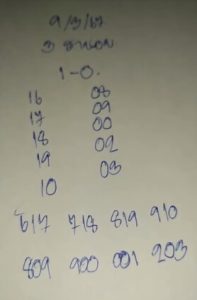 9/3/67
3 ฮานอย
1-0.
16 08
17 09
18 00
19 02
10 03
617 718 819 910
809 900 001 203